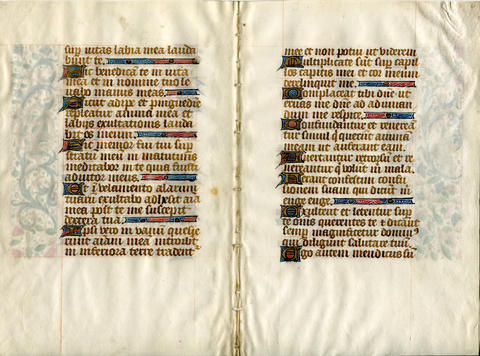 sup vitas labia mea lauda
bunt te.
Sic benedicā te in vita
mea et in nomine tuo le
vabo manus meas.
Sicut adipe et pinguedīe
repleatur anima mea et
labijs exultationis lauda
bit os meum.
Sic memor fui tui sup
stratū meū in matutinis
meditabor in te quia fuisti
adiutor meus.
Et ī velamento alarum
tuarū exultabo adhesit aīa
mea post te me suscepit
dextera tua.
Ipsi vero in vanū quesie
runt aīam mea introibūt
in inferiora terre tradent
mee et non potui ut viderem
Multiplicate sūt sup capil
los capitis mei et cor meum
dereliquit me.
Complaceat tibi dn̄e ut
eruas me dn̄e ad adiuuan
dum me respice.
Confundātur et reuereā
tur simul q̄ querūt animā
meam ut auferant eam.
Conuertantur retrorsū et re
uereantur q̄ volūt m̄ mala.
Ferant confestim confu
sionem suam qui dicūt m̄
euge euge.
Exultent et letentur sup
te om̄s querentes te et dicant
semp magnificetur domin9
qui diligunt salutare tuū.
Ego autem mendicus sū